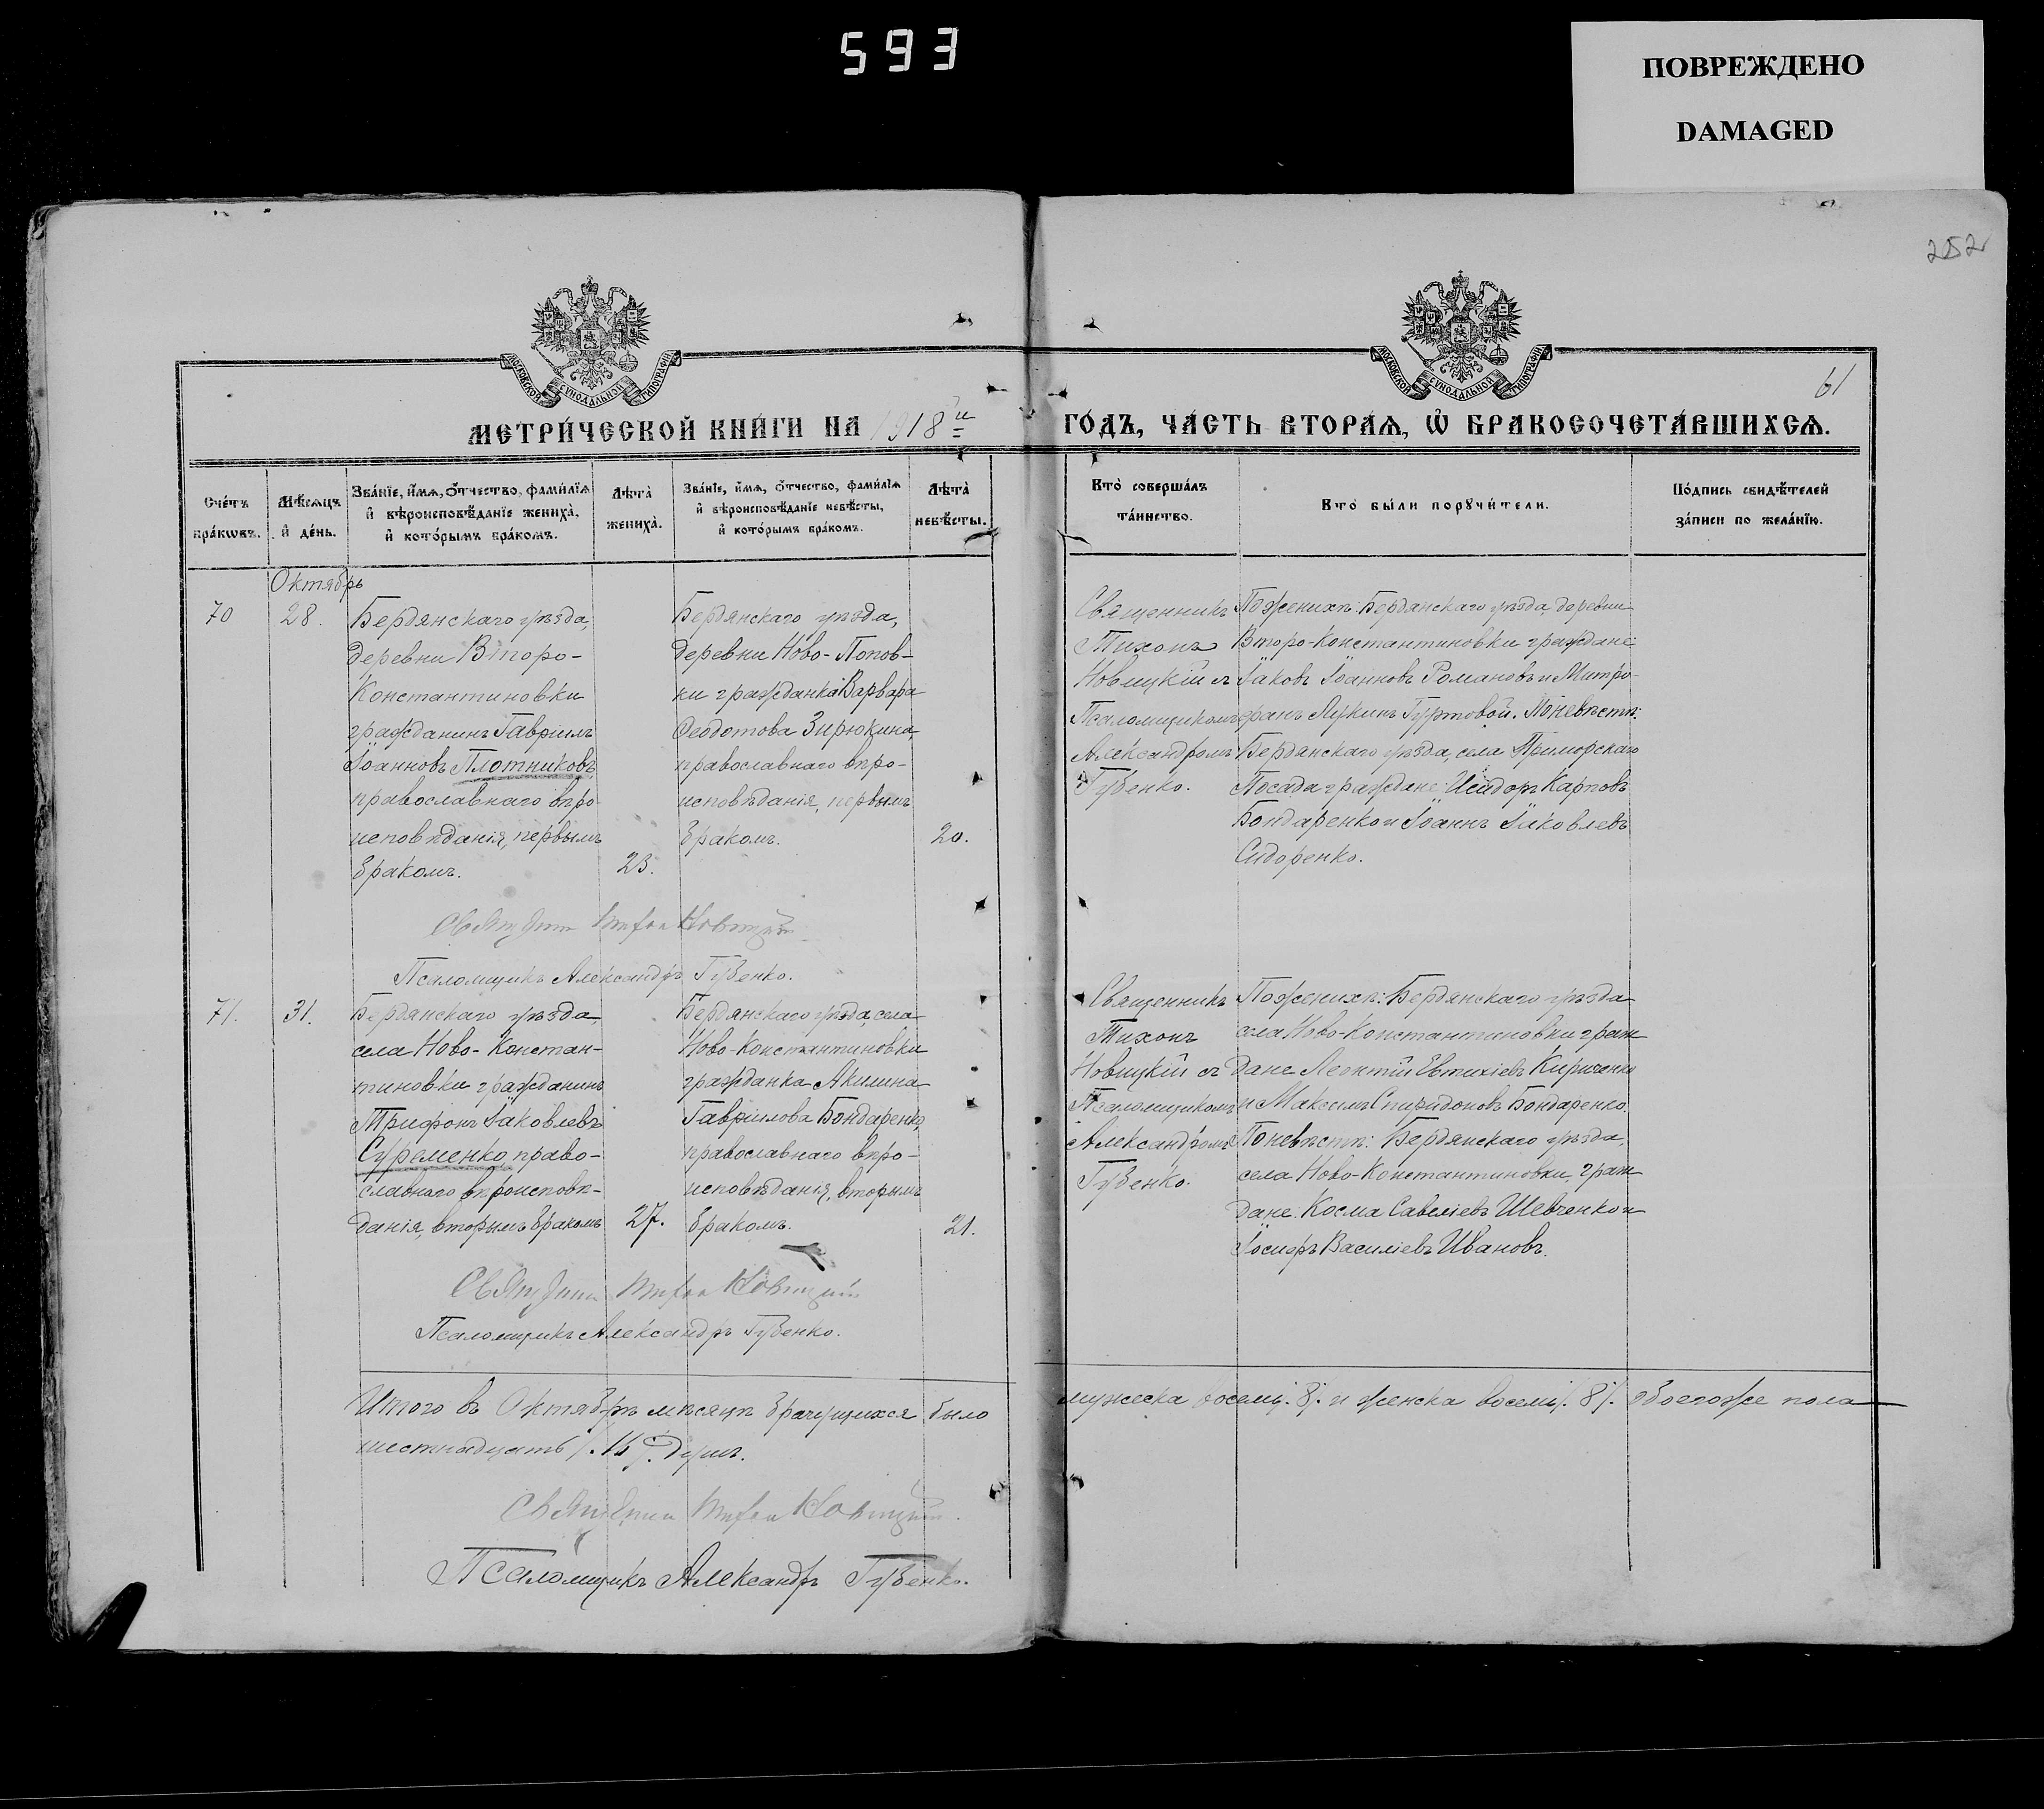 593
ПОВРЕЖДЕНО
DAMAGED
252
61
МОСКОВСКОЙ СѴНОДАЛЬНОЙ ТИПОГРАФІИ
МОСКОВСКОЙ СѴНОДАЛЬНОЙ ТИПОГРАФІИ
МЕТРИ́ЧЕСКОЙ КНИ́ГИ НА 1918й
ГО́ДЪ, ЧА́СТЬ ВТОРА́Ѧ, Ѡ҆ БРАКОСОЧЕТА́ВШИХСѦ.
Сче́тъ бра́кѡвъ.
Мѣ́сѧцъ и҆ де́нь.
Зва́нїе, и҆́мѧ, ѻ҆́тчество, фами́лїѧ
и҆ вѣроисповѣ́данїе жениха̀,
и҆ кото́рымъ бра́комъ.
Лѣта̀ жениха̀.
Зва́нїе, и҆́мѧ, ѻ҆́тчество, фами́лїѧ
и҆ вѣроисповѣ́данїе невѣ́сты,
и҆ кото́рымъ бра́комъ.
Лѣта̀ невѣ́сты.
Кто̀ соверша́лъ та́инство.
Кто̀ бы́ли порꙋчи́тели.
По́дпись свидѣ́телей за́писи по жела́нїю.
Октябрь
70
28.
Бердянскаго уѣзда,
деревни Второ-
Константиновки
гражданинъ Гавріилъ
Іоанновъ Плотниковъ,
православнаго вѣро-
исповѣданія, первымъ
бракомъ.
23.
Бердянскаго уѣзда,
деревни Ново-Попов-
ки гражданка Варвара
Ѳеодотова Зирюкина,
православнаго вѣро-
исповѣданія, первымъ
бракомъ.
20.
Священникъ
Тихонъ
Новицкій съ
Псаломщикомъ
Александромъ
Губенко.
По женихѣ: Бердянскаго уѣзда, деревни
Второ-Константиновки граждане:
Іаковъ Іоанновъ Романовъ и Митро-
фанъ Лукинъ Гуртовой. По невѣстѣ:
Бердянскаго уѣзда, села Приморскаго
Посада граждане: Исидоръ Карповъ
Бондаренко и Іоаннъ Іаковлевъ
Сидоренко.
Священник Тихон Новицкій
Псаломщикъ Александръ Губенко.
71.
31.
Бердянскаго уѣзда,
села Ново-Констан-
тиновки гражданинъ
Трифонъ Іаковлевъ
Суременко, право-
славнаго вѣроисповѣ-
данія, вторымъ бракомъ
27.
Бердянскаго уѣзда, села
Ново-Константиновки
гражданка Акилина
Гавріилова Бондаренко,
православнаго вѣро-
исповѣданія, вторымъ
бракомъ.
21.
Священникъ
Тихонъ
Новицкій съ
Псаломщикомъ
Александромъ
Губенко.
По женихѣ: Бердянскаго уѣзда
села Ново-Константиновки граж
дане Леонтій Евтихіевъ Кириченко
и Максимъ Спиридоновъ Бондаренко.
По невѣстѣ: Бердянскаго уѣзда,
села Ново-Константиновки, граж
дане: Косма Савеліевъ Шевченко и
Іосифъ Василіевъ Ивановъ.
Священник Тихон Новицкій
Псаломщикъ Александръ Губенко.
Итого въ Октябрѣ мѣсяцѣ брачущихся было
мужеска восемь /. 8 /. и женска восемь /. 8 /. обоегоже пола
шестнадцать /. 16 /. душъ.
Священник Тихон Новицкій.
Псаломщикъ Александръ Губенко.